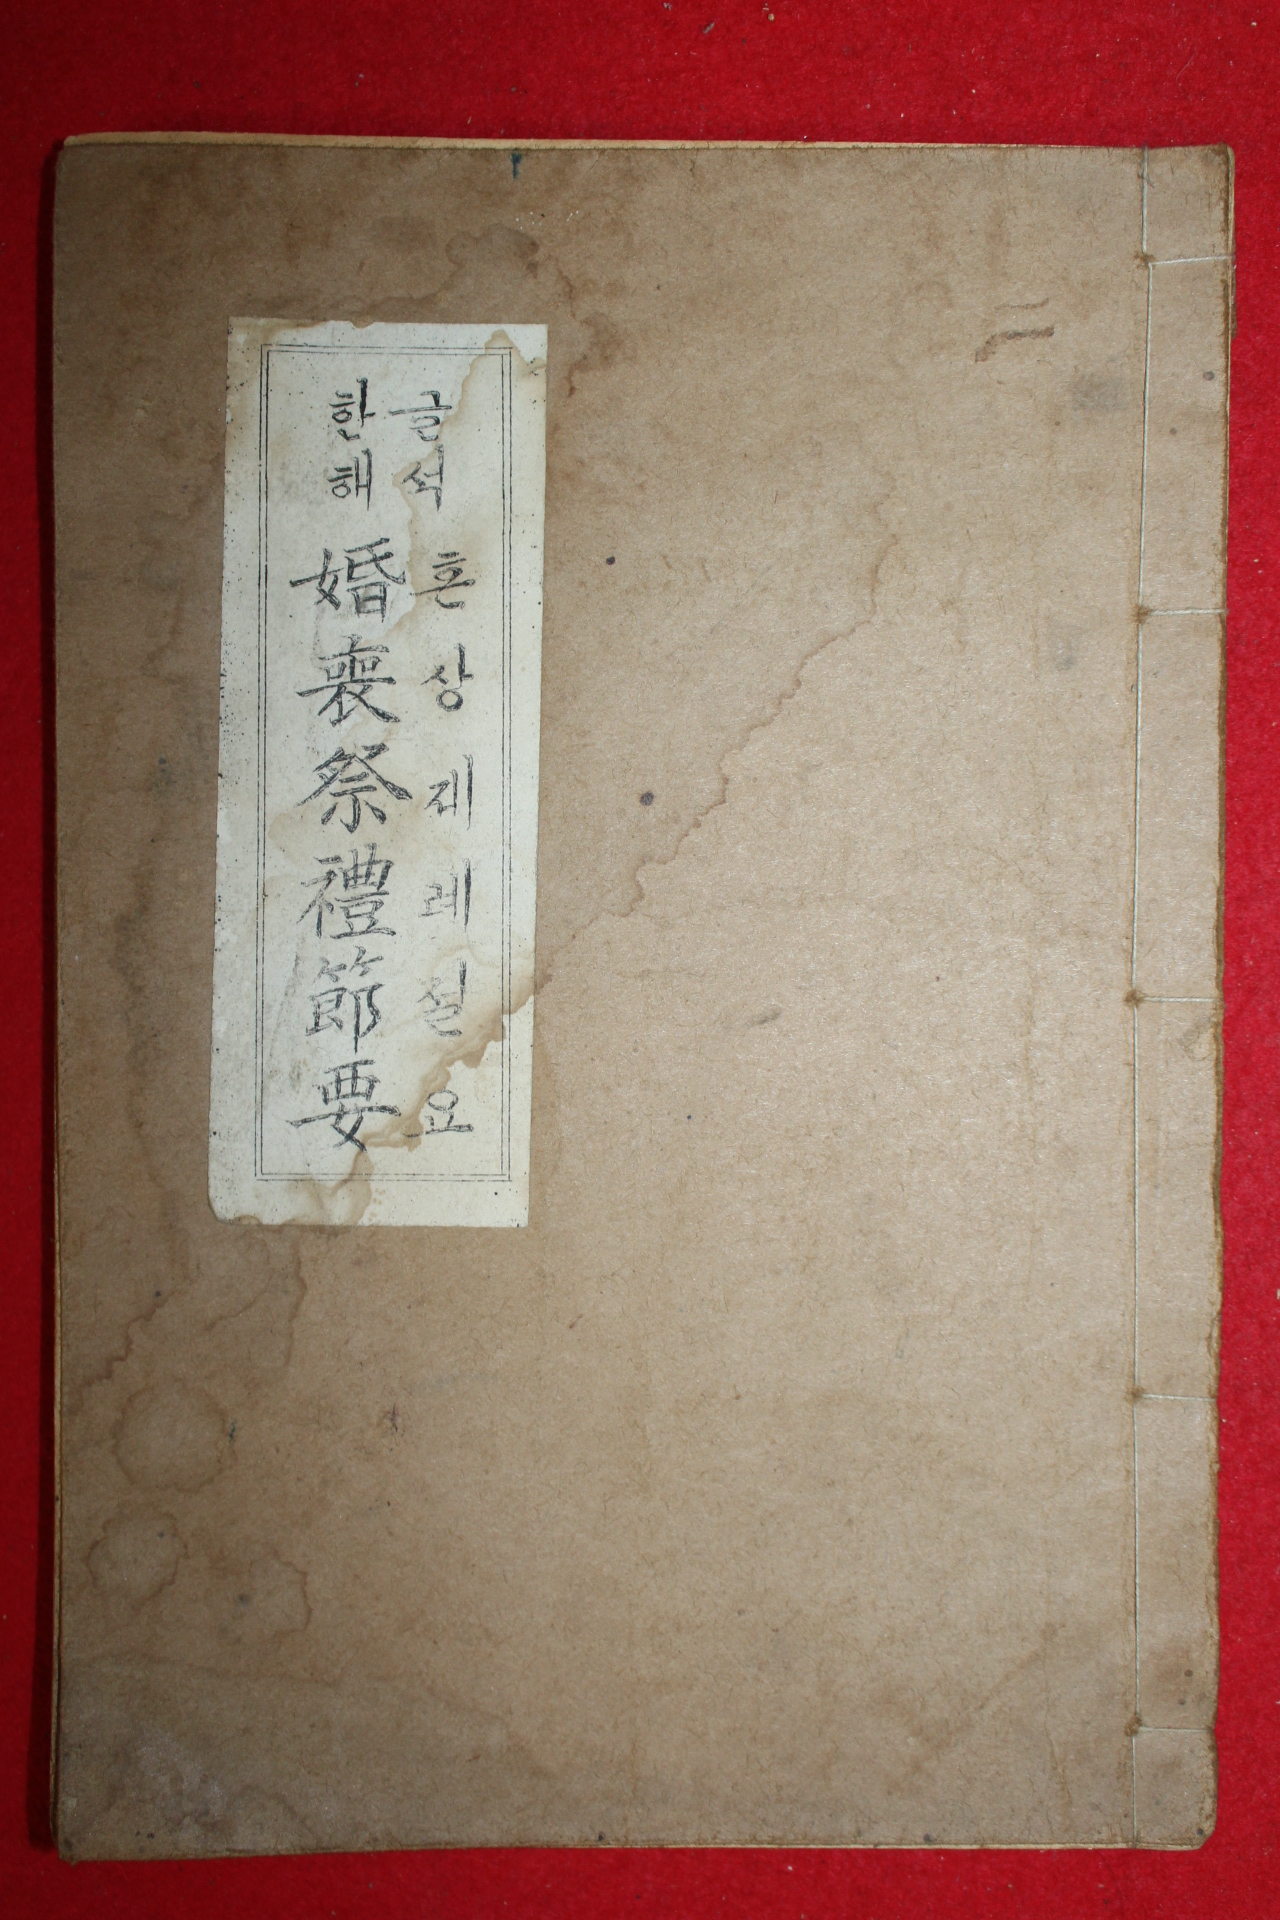 한글
해석
婚喪祭禮節要
혼상제례절요